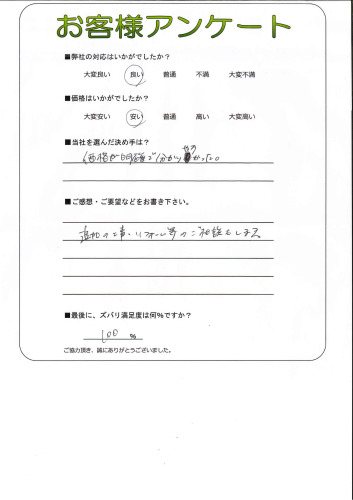 お客様アンケート
■弊社の対応はいかがでしたか？
大変良い 良い 普通 不満 大変不満
■価格はいかがでしたか？
大変安い 安い 普通 高い 大変高い
■当社を選んだ決め手は？
価格が明確で分かりやすかった。
■ご感想・ご要望などをお書き下さい。
追加の工事・リフォーム等のご相談も
■最後に、ズバリ満足度は何％ですか？
100 ％
ご協力頂き、誠にありがとうございました。